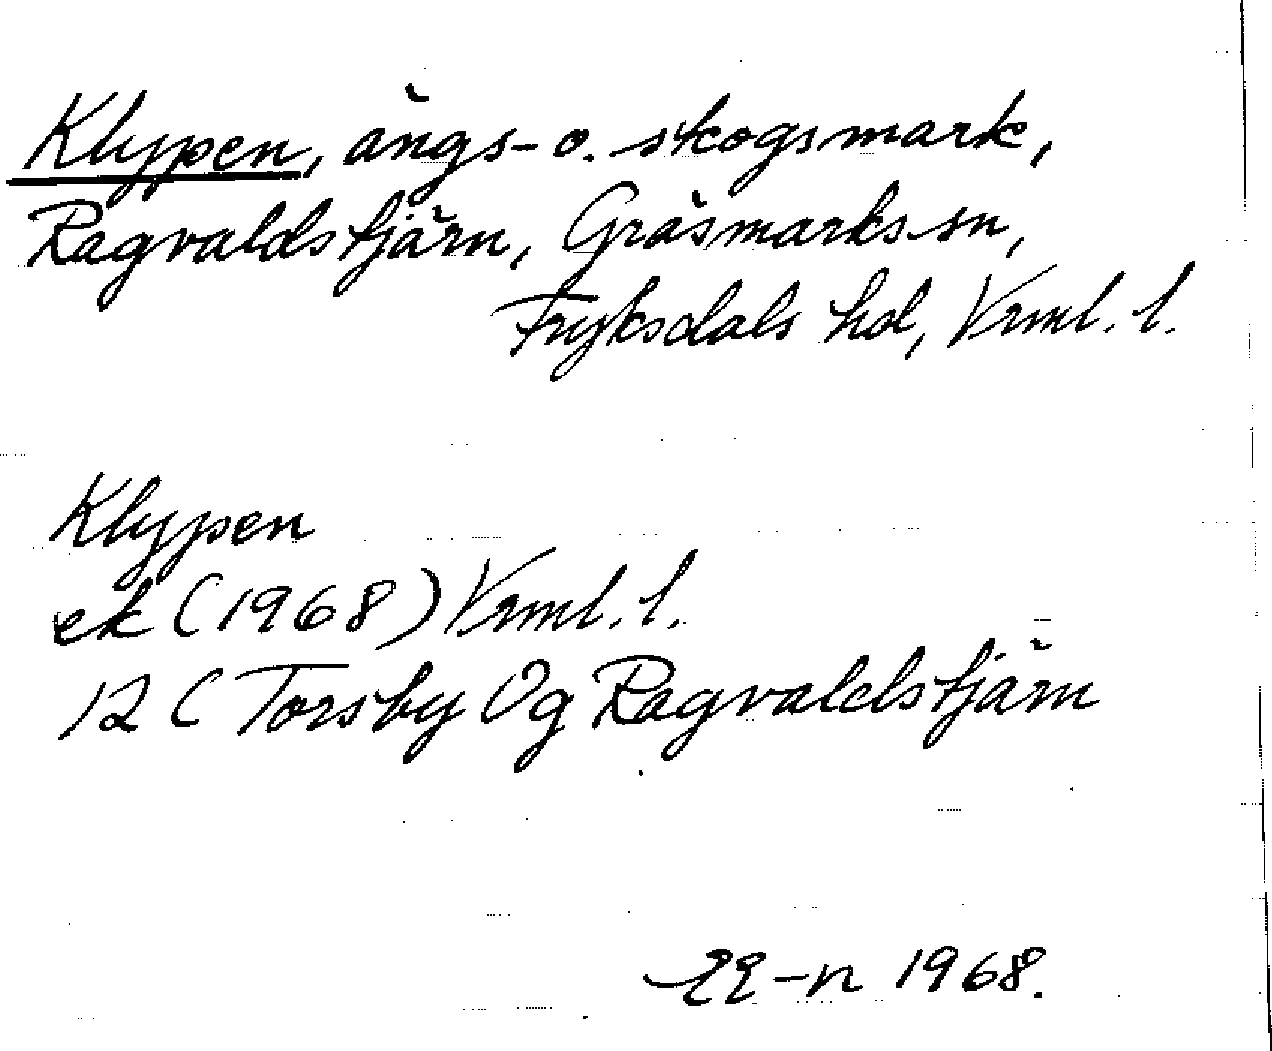 Klypen, ängs- o. skogsmark,
Ragvaldstjärn, Gräsmarks sn,
Fryksdals hd, Vrml. l.
Klypen
ek (1968) Vrml. l.
12 C Torsby 0g Ragvaldstjärn
1968.